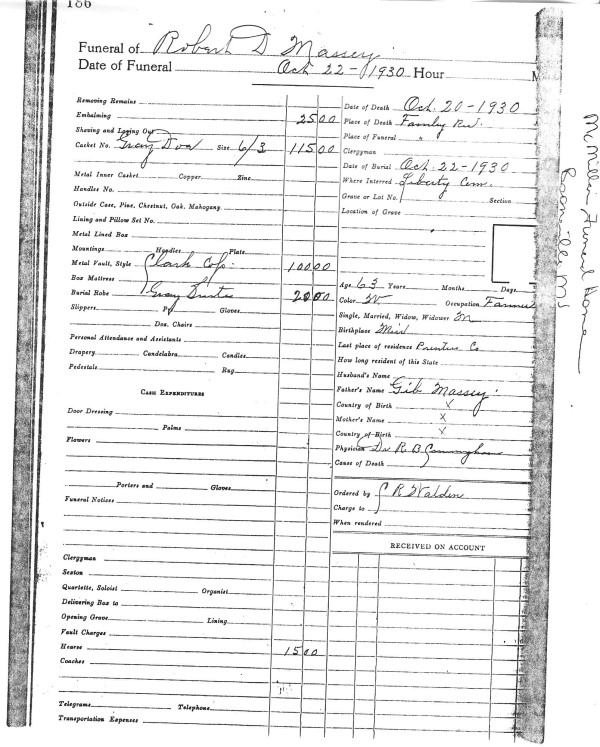 186
Funeral of Robert D Massey
Date of Funeral Oct 22-1930 Hour M
Removing Remains
Embalming 25 00
Shaving and Laying Out
Casket No. Gray Doe Size 6/3 115 00
Metal Inner Casket Copper Zinc
Handles No.
Outside Case, Pine, Chestnut, Oak, Mahogany
Lining and Pillow Set No.
Metal Lined Box
Mountings Handles Plate
Metal Vault, Style Clark 100 00
Box Mattress
Burial Robe Gray 20 00
Slippers Pr Gloves
Doz. Chairs
Personal Attendance and Assistants
Drapery Candelabra Candles
Pedestals Rug
CASH EXPENDITURES
Door Dressing
Palms
Flowers
Porters and Gloves
Funeral Notices
Clergyman
Sexton
Quartette, Soloist Organist
Delivering Box to
Opening Grave Lining
Vault Charges
Hearse 15 00
Coaches
Telegrams Telephone
Transportation Expenses
Date of Death Oct. 20-1930
Place of Death Family Res.
Place of Funeral "
Clergyman
Date of Burial Oct. 22-1930
Where Interred Liberty Cem.
Grave or Lot No. Section
Location of Grave
Age 63 Years Months Days
Color W Occupation Farmer
Single, Married, Widow, Widower M
Birthplace Miss
Last place of residence Prentiss Co
How long resident of this State
Husband's Name
Father's Name Gib Massey
Country of Birth X
Mother's Name X
Country of Birth X
Physician Dr. R B Cunningham
Cause of Death
Ordered by R Walden
Charge to
When rendered
RECEIVED ON ACCOUNT
McMillin Funeral Home
Booneville, MS